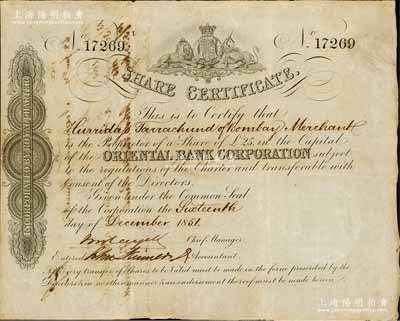 上海阳明拍卖
No. 17269
No. 17269
SHARE CERTIFICATE.
This is to Certify that
Hurridass Tarrachund of Bombay Merchant
is the Proprietor of a Share of £25, in the Capital
of the ORIENTAL BANK CORPORATION subject
to the regulations of the Charter and transferable with
Consent of the Directors.
Given under the Common Seal
of the Corporation the Sixteenth
day of December 1851.
Chief Manager
Entered Accountant.
Every transfer of Shares to be Valid must be made in the form prescribed by the
Directors & in no other manner & an endorsement thereof must be made hereon.
INCORPORATED BY ROYAL CHARTER